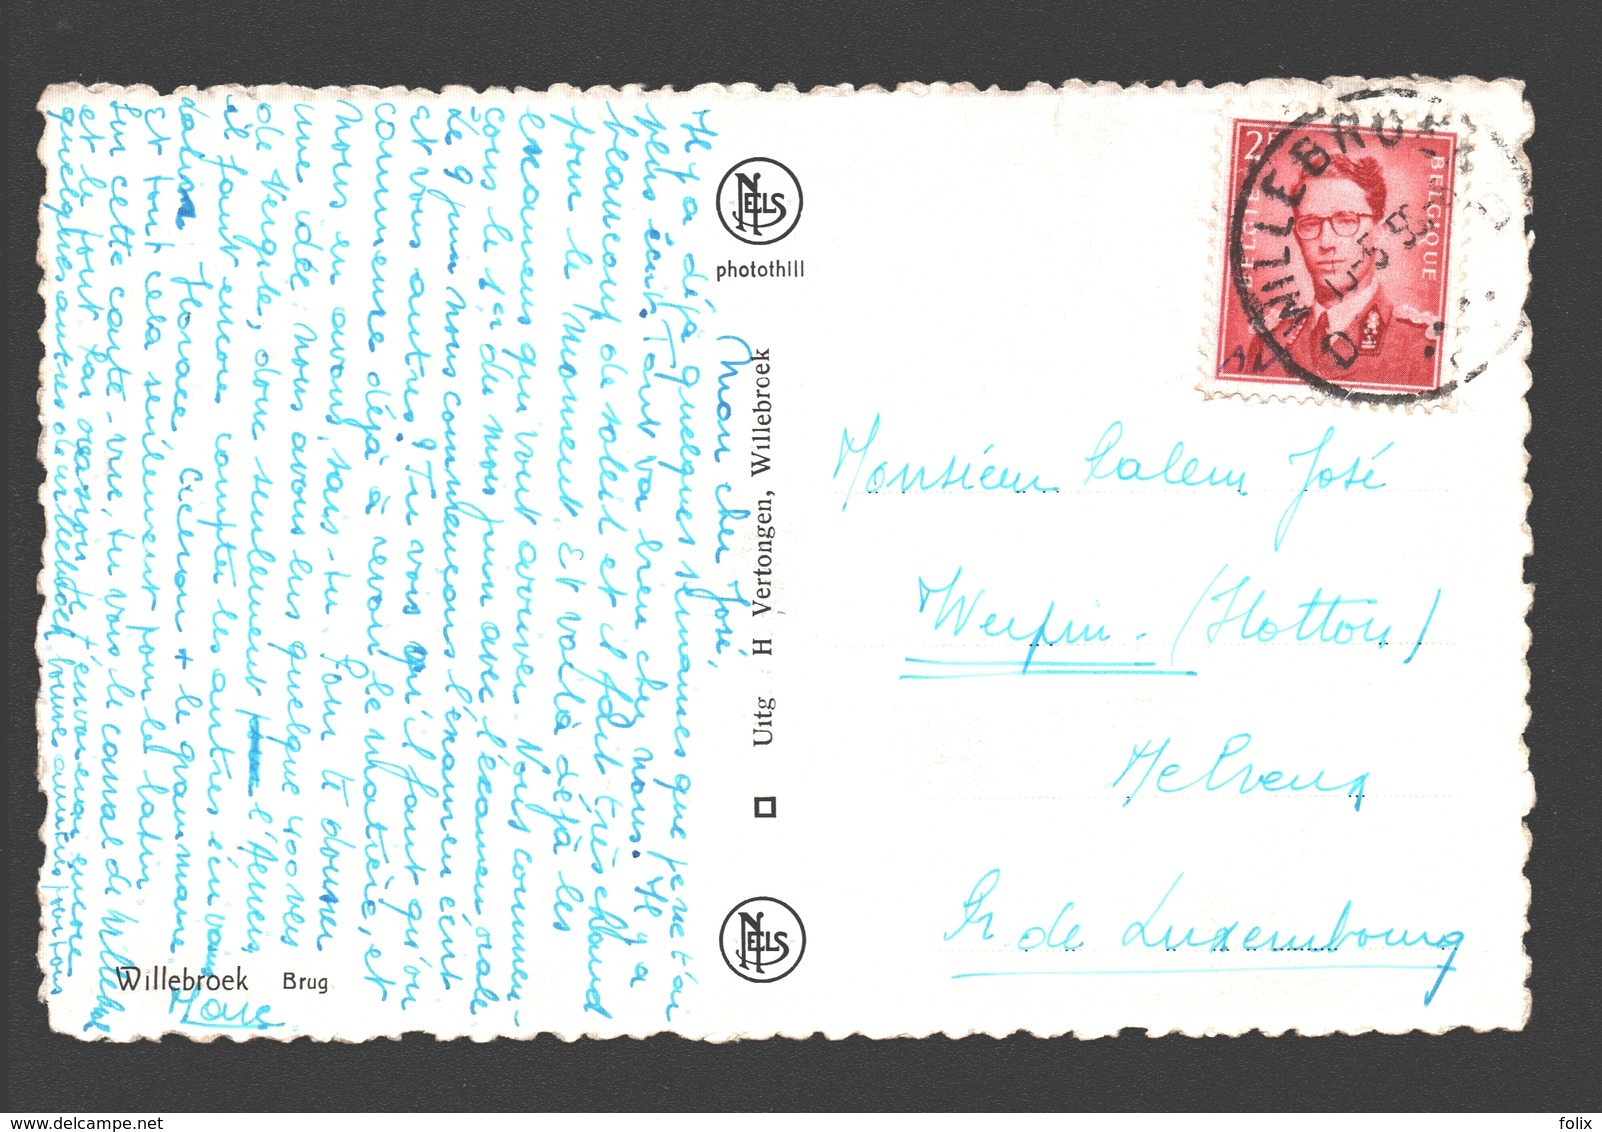 Mon cher José,
Il y a déjà quelques semaines que je ne t'ai
plus écrit. Tout va bien chez nous. Il y a
beaucoup de soleil et il fait très chaud
pour le moment. Et voilà déjà les
examens qui vont arriver. Nous commen-
çons le 1er du mois juin avec l'examen orale
Le 9 juin nous commençons l'examen écrit
et vous autres? Tu vois qu'il faut qu'on
commence déjà à revoir la matière, et
nous en avons, sais-tu. Pour te donner
une idée, nous avons lus quelque 400 vers
de Vergile, donc seulement l'Aeneis,
il faut encore compter les autres écrivains
latins Horace Cicéron + le grammaire
Et tout cela seulement pour le latin.
Sur cette carte-vue, tu vois le canal de Willebroek
et le pont. Par occasion je t'enverrai encore
quelques autres de Willebroek
Marc
Willebroek Brug
NELS
photothill
Uitg H Vertongen, Willebroek
NELS
2F
BELGIE BELGIQUE
WILLEBROEK
D D
Monsieur Salem José
Werpin - (Hotton)
Melreux
Pr. de Luxembourg
delcampe.net
folix